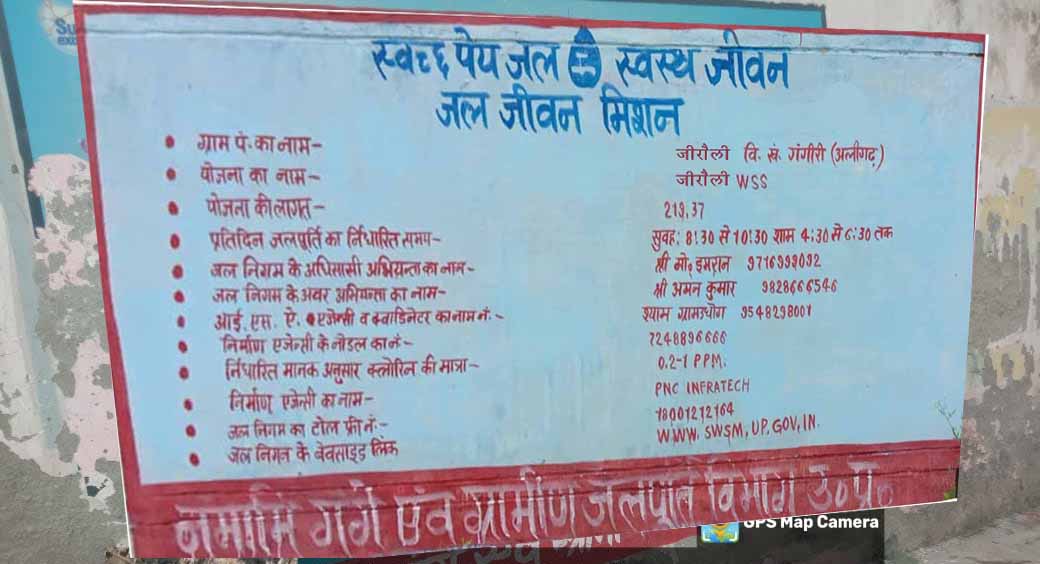 स्वच्छ पेय जल स्वस्थ जीवन
जल जीवन मिशन
ग्राम पं. का नाम- जीरौली वि. खं. गंगीरी (अलीगढ़)
योजना का नाम- जीरौली WSS
योजना की लागत- 219.37
प्रतिदिन जलपूर्ति का र्निधारित समय- सुवह: 8:30 से 10:30 शाम 4:30 से 6:30 तक
जल निगम के अधिसासी अभियन्ता का नाम- श्री मो० इमरान 9716999092
जल निगम के अवर अभियन्ता का नाम- श्री अमन कुमार 9828666546
आई. एस. ऐ. एजेन्सी व क्वाडिनेटर का नाम नं:- श्याम ग्रामउधोग 9548298001
निर्माण एजेन्सी के नोडल का नं- 7248896666
र्निधारित मानक अनुसार क्लोरिन की मात्रा- 0.2-1 PPM.
निर्माण एजेन्सी का नाम- PNC INFRATECH
जल निगम का टोल फ्री नं:- 18001212164
जल निगम के वेवसाइड लिंक WWW. SWSM, UP. GOV, IN.
नमामि गंगे एंव ग्रामीण जलपूर्ति विभाग उ०प्र०
GPS Map Camera